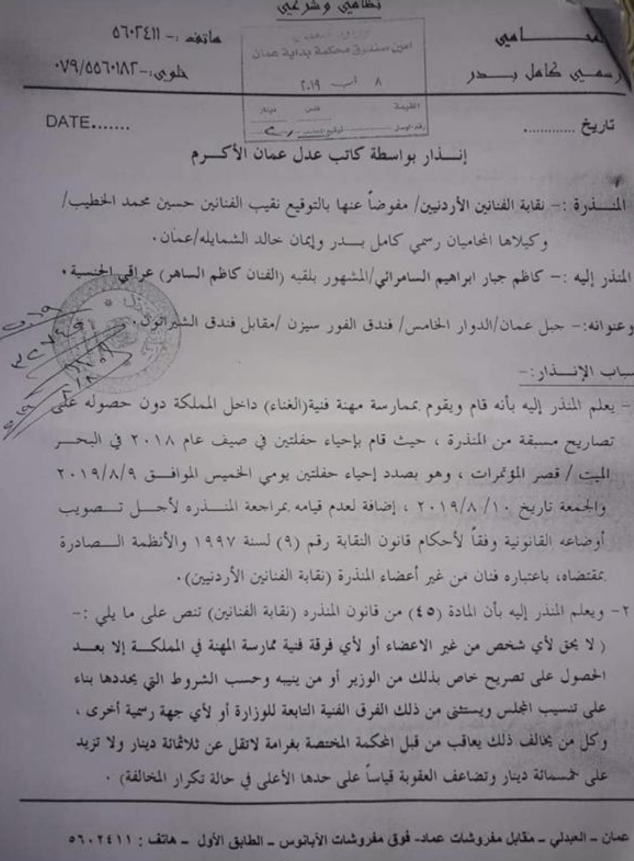 نظامي وشرعي
المحـــامي
هاتف :- ٥٦٠٢٤١١
امين صندوق محكمة بداية عمان
رسمي كامل بـدر
خلوي:- ٠٧٩/٥٥٦٠١٨٢
٨ آب ٢٠١٩
القيمة
فلس دينار
رقم الوصل
تاريخ ............
DATE.......
إنـذار بواسطة كاتب عدل عمان الأكـرم
المنـذرة :- نقابة الفنانين الأردنيين/ مفوضاً عنها بالتوقيع نقيب الفنانين حسين محمد الخطيب/
وكيلاها المحاميان رسمي كامل بـدر وإيمان خالد الشمايله/عمان.
المنذر إليه :- كاظم جبار ابراهيم السامرائي/المشهور بلقبه (الفنان كاظم الساهر) عراقي الجنسية.
وعنوانه:- جبل عمان/الدوار الخامس/ فندق الفور سيزن /مقابل فندق الشيراتون.
سباب الإنـذار:-
- يعلم المنذر إليه بأنه قام ويقوم بممارسة مهنة فنية(الغناء) داخل المملكة دون حصوله على
تصاريح مسبقة من المنذرة ، حيث قام بإحياء حفلتين في صيف عام ٢٠١٨ في البحر
الميت / قصر المؤتمرات ، وهو بصدد إحياء حفلتين يومي الخميس الموافـق ٢٠١٩/٨/٩
والجمعة تاريخ ٢٠١٩/٨/١٠ ، إضافة لعدم قيامه بمراجعة المنـذره لأجـل تـصويب
أوضاعه القانونية وفقاً لأحكام قانون النقابة رقم (٩) لسنة ١٩٩٧ والأنظمة الـصادرة
بمقتضاه، باعتباره فنان من غير أعضاء المنذرة (نقابة الفنانين الأردنيين).
٢- ويعلم المنذر إليه بأن المادة (٤٥) من قانون المنذره (نقابة الفنانين) تنص على ما يلي :-
( لا يحق لأي شخص من غير الاعضاء او لأي فرقة فنية ممارسة المهنة في المملكـة إلا بعـد
الحصول على تصريح خاص بذلك من الوزير أو من ينيبه وحسب الشروط التي يحددها بناء
على تنسيب المجلس ويستثنى من ذلك الفرق الفنية التابعة للوزارة أو لأي جهة رسمية أخرى ،
وكل من يخالف ذلك يعاقب من قبل المحكمة المختصة بغرامة لاتقل عن ثلاثمائة دينار ولا تزيد
على خمسمائة دينار وتضاعف العقوبة قياساً على حدها الأعلى في حالة تكرار المخالفة) .
عمان – العبدلي – مقابل مفروشات عماد- فوق مفروشات الآبانوس – الطابق الأول – هاتف : ٥٦٠٢٤١١